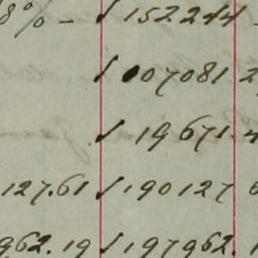 8% - ✓ 152244
✓ 007081 2
✓ 19671.4
127.61 ✓ 190127 6
962.19 ✓ 197962.1